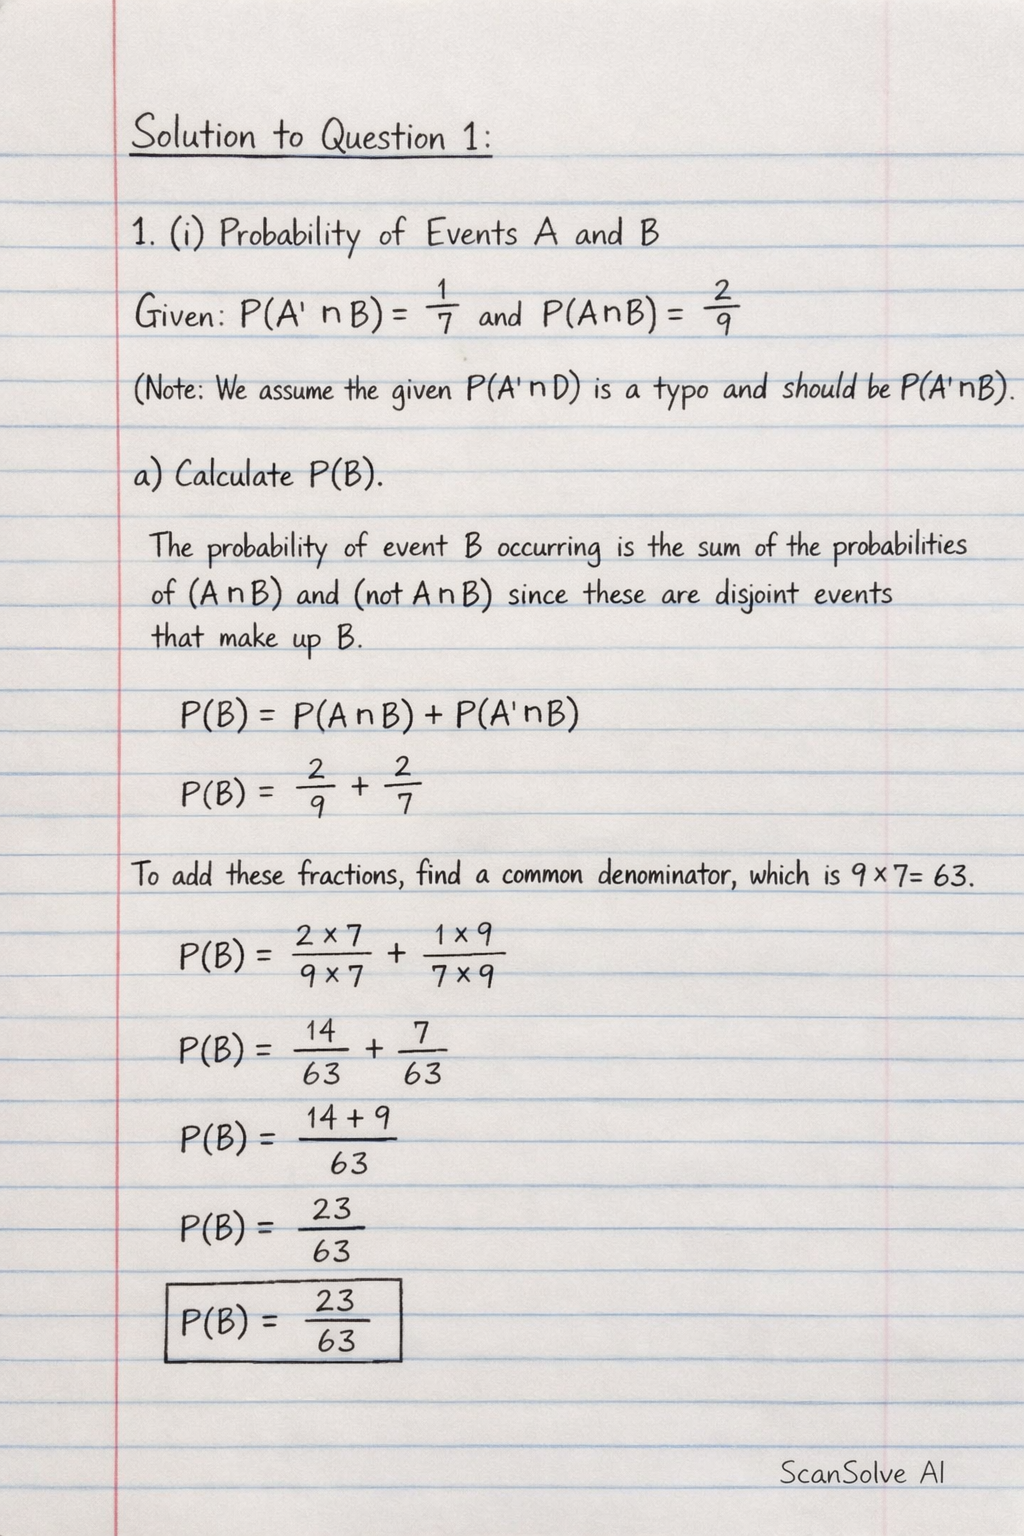 Solution to Question 1:
1. (i) Probability of Events A and B
Given: P(A' ∩ B) = 1/7 and P(A∩B) = 2/9
(Note: We assume the given P(A'∩D) is a typo and should be P(A'∩B).
a) Calculate P(B).
The probability of event B occurring is the sum of the probabilities
of (A∩B) and (not A∩B) since these are disjoint events
that make up B.
P(B) = P(A∩B) + P(A'∩B)
P(B) = 2/9 + 2/7
To add these fractions, find a common denominator, which is 9×7= 63.
P(B) = 2×7/9×7 + 1×9/7×9
P(B) = 14/63 + 7/63
P(B) = 14+9/63
P(B) = 23/63
P(B) = 23/63
ScanSolve AI